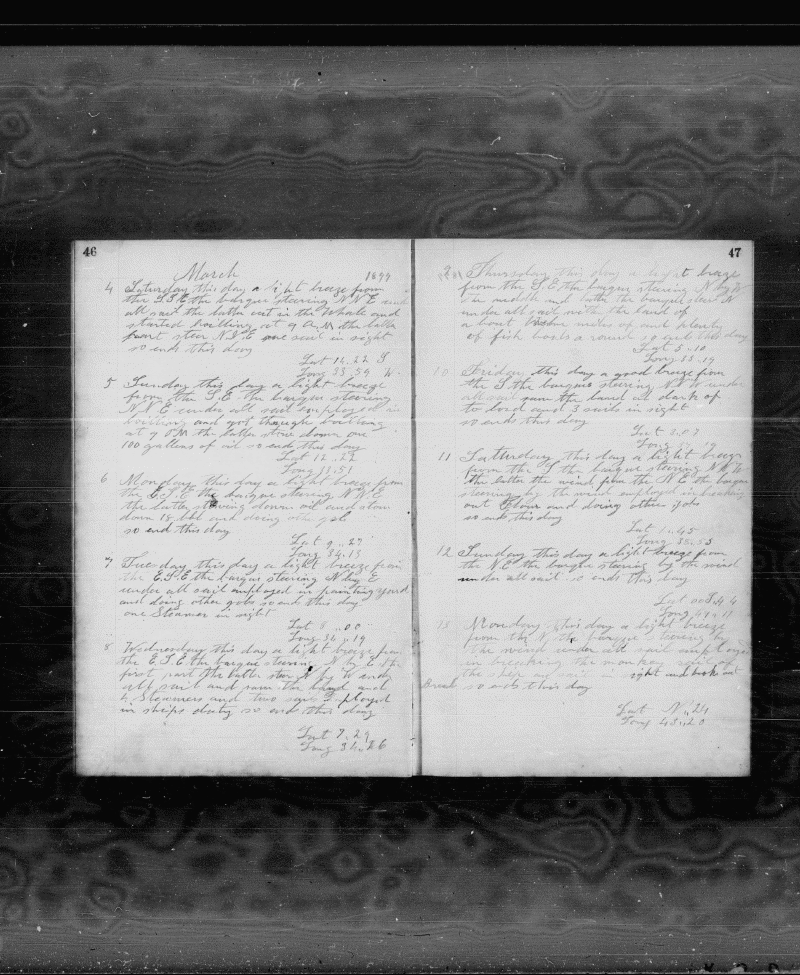 46
March 1899
4 Saturday this day a light breeze from
the S.S.E the barque steering N N E under
all sail the latter cut in the Whale and
started boiling at 9 A M the latter
part steer N.I.E one sail in sight
so ends this day
Lat 14.22 S
Long 33.59 W
5 Sunday this day a light breeze
from the S.E. the barque steering
N N E under all sail employed in
boiling and got through boiling
at 9 P M the latter stow down
100 gallons of oil so ends this day
Lat 12..22
Long 33.51
6 Monday this day a light breeze from
the E.S.E the barque steering N N E
the latter stowing down oil and stow
down 18 bbl and doing other jobs
so end this day
Lat 9..27
Long 34.13
7 Tuesday this day a light breeze from
the E.S.E the barque steering N by E
under all sail employed in painting
and doing other jobs so ends this day
one Steamer in sight
Lat 8..00
Long 34..19
8 Wednesday this day a light breeze from
the E.S.E the barque steering N by E the
first part the latter steer N by W under
all sail and saw the land and
2 Steamers and two sails Employed
in ships duty so end this day
Lat 7.29
Long 34..26
47
Thursday this day a light breeze
from the S.E. the barque steering N by W
the middle and latter the barque steer N
under all sail with the land of
about miles of and plenty
of fish boats around so ends this day
Lat 5.10
Long 35.19
10 Friday this day a good breeze from
the S the barque steering N W under
all sail saw the land at dark of
and 3 sails in sight
so ends this day
Lat 2.07
Long
11 Saturday this day a light breeze
from the S the barque steering N W
the latter the wind from the N.E the barque
steering by the wind employed in breaking
out flour and doing other jobs
so ends this day
Lat 1..45
Long 38.53
12 Sunday this day a light breeze from
the N.E the barque steering by the wind
under all sail so ends this day
Lat
Long
13 Monday this day a light breeze
from the N. the barque steering by
the wind under all sail employed
in breaking the
the sail in sight and broke out
Bread so ends this day
Lat N..24
Long 43..20